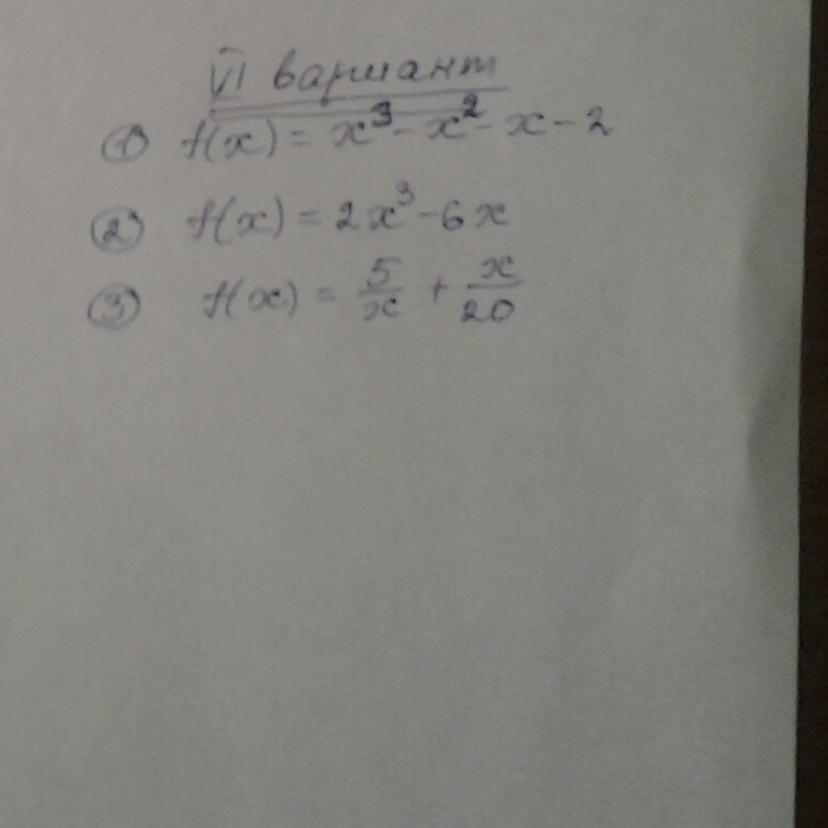 VI вариант
1) f(x) = x³ - x² - x - 2
2) f(x) = 2x³ - 6x
3) f(x) = 5/x + x/20